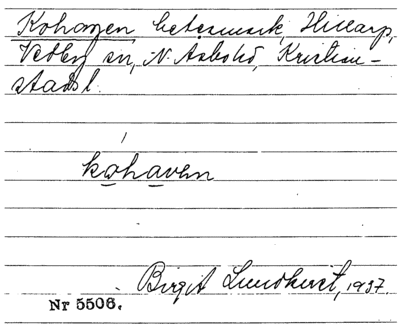 Kohagen betesmark, Hillarp,
Vedby sn, N. Åsbo hd, Kristian-
stads l.
kohaven
Birgit Lundkvist, 1937.
Nr 5506.